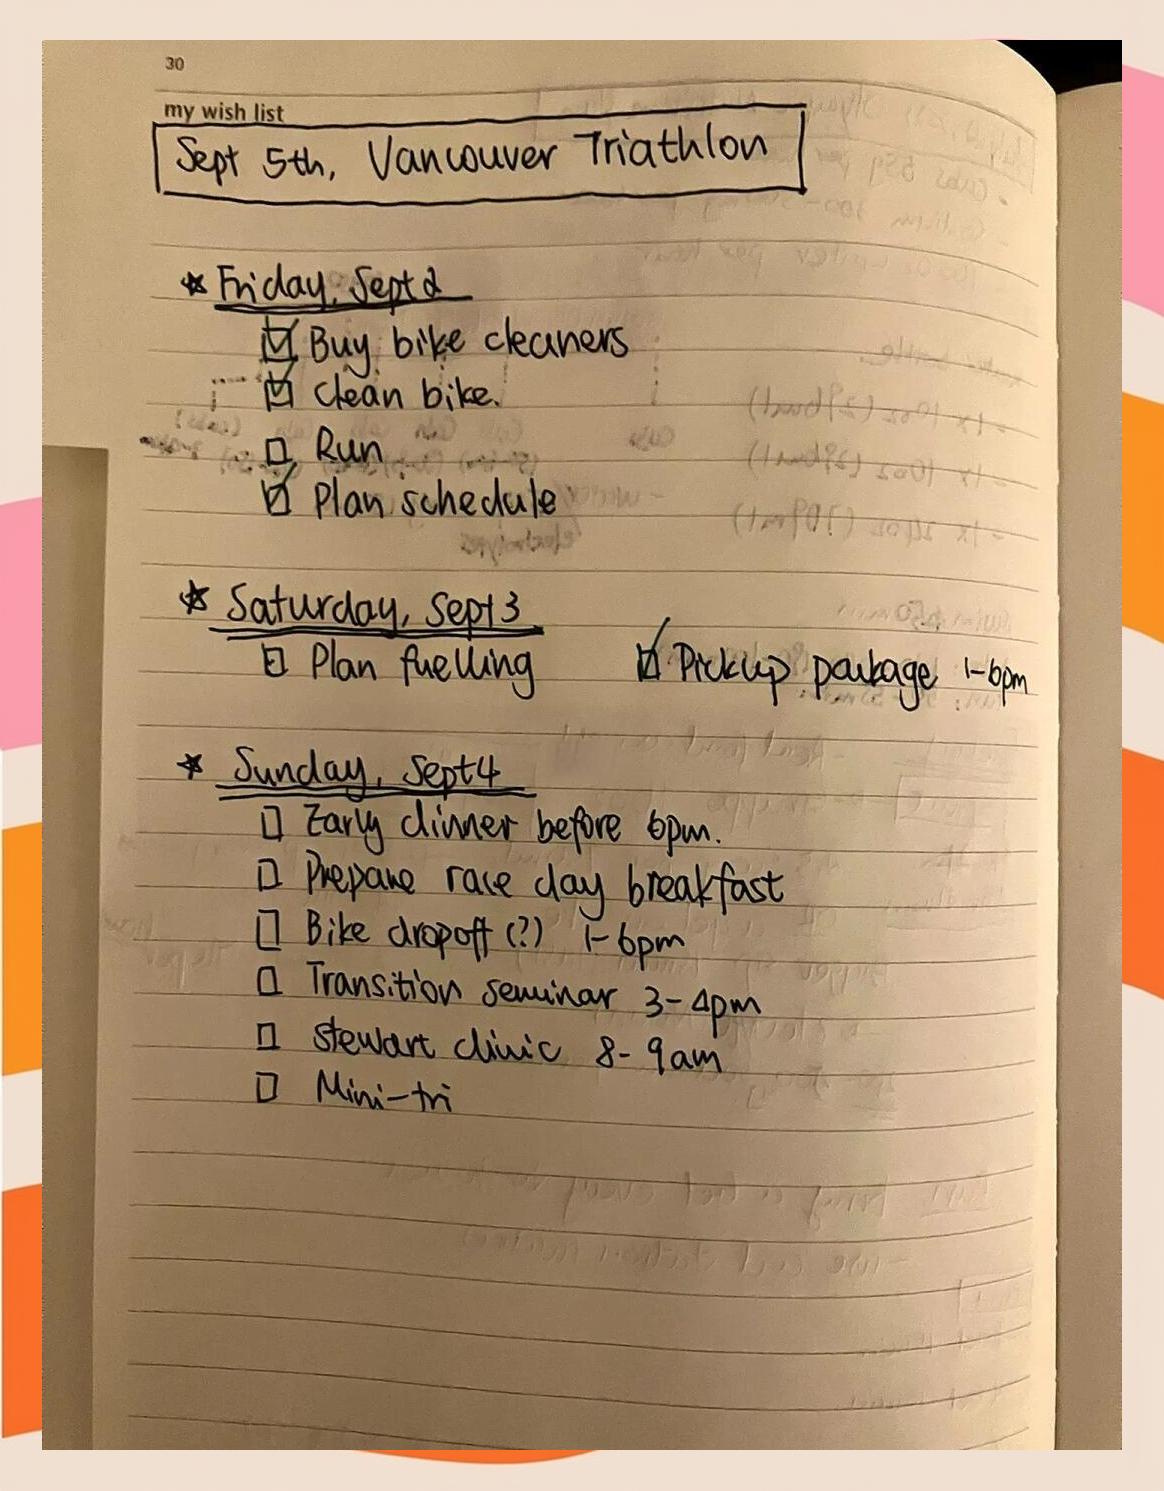 30
my wish list
Sept 5th, Vancouver Triathlon
Friday, Sept 2
Buy bike cleaners
Clean bike.
Run
Plan schedule
Saturday, Sept 3
Plan fuelling
Pickup package 1-6pm
Sunday, Sept 4
Early dinner before 6pm.
Prepare race day breakfast
Bike dropoff (?) 1-6pm
Transition seminar 3-4pm
Stewart clinic 8-9am
Mini-tri